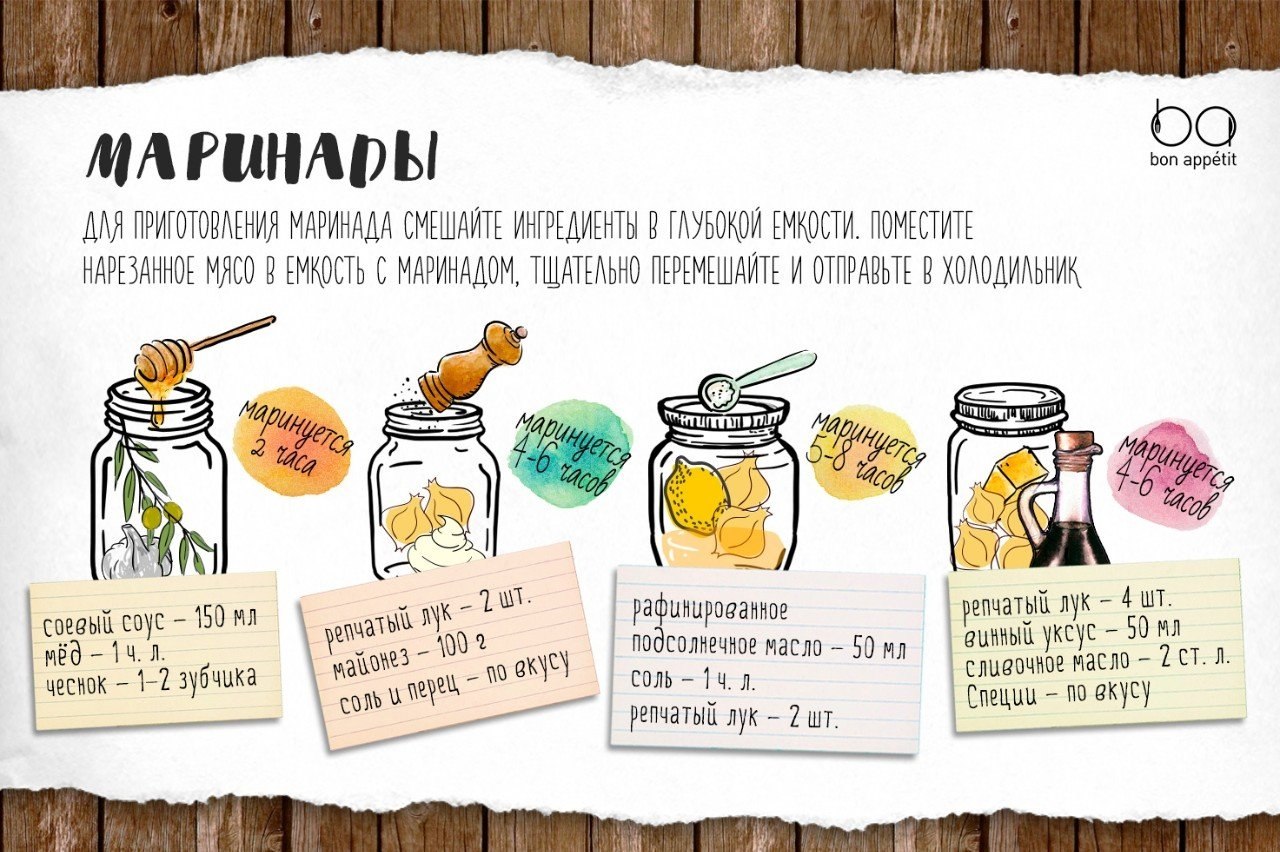 МАРИНАДЫ
ba
bon appétit
ДЛЯ ПРИГОТОВЛЕНИЯ МАРИНАДА СМЕШАЙТЕ ИНГРЕДИЕНТЫ В ГЛУБОКОЙ ЕМКОСТИ. ПОМЕСТИТЕ
НАРЕЗАННОЕ МЯСО В ЕМКОСТЬ С МАРИНАДОМ, ТЩАТЕЛЬНО ПЕРЕМЕШАЙТЕ И ОТПРАВЬТЕ В ХОЛОДИЛЬНИК
маринуется
2 часа
соевый соус – 150 мл
мёд – 1 ч. л.
чеснок – 1-2 зубчика
маринуется
4-6 часов
репчатый лук – 2 шт.
майонез – 100 г
соль и перец – по вкусу
маринуется
5-8 часов
рафинированное
подсолнечное масло – 50 мл
соль – 1 ч. л.
репчатый лук – 2 шт.
маринуется
4-6 часов
репчатый лук – 4 шт.
винный уксус – 50 мл
сливочное масло – 2 ст. л.
Специи – по вкусу